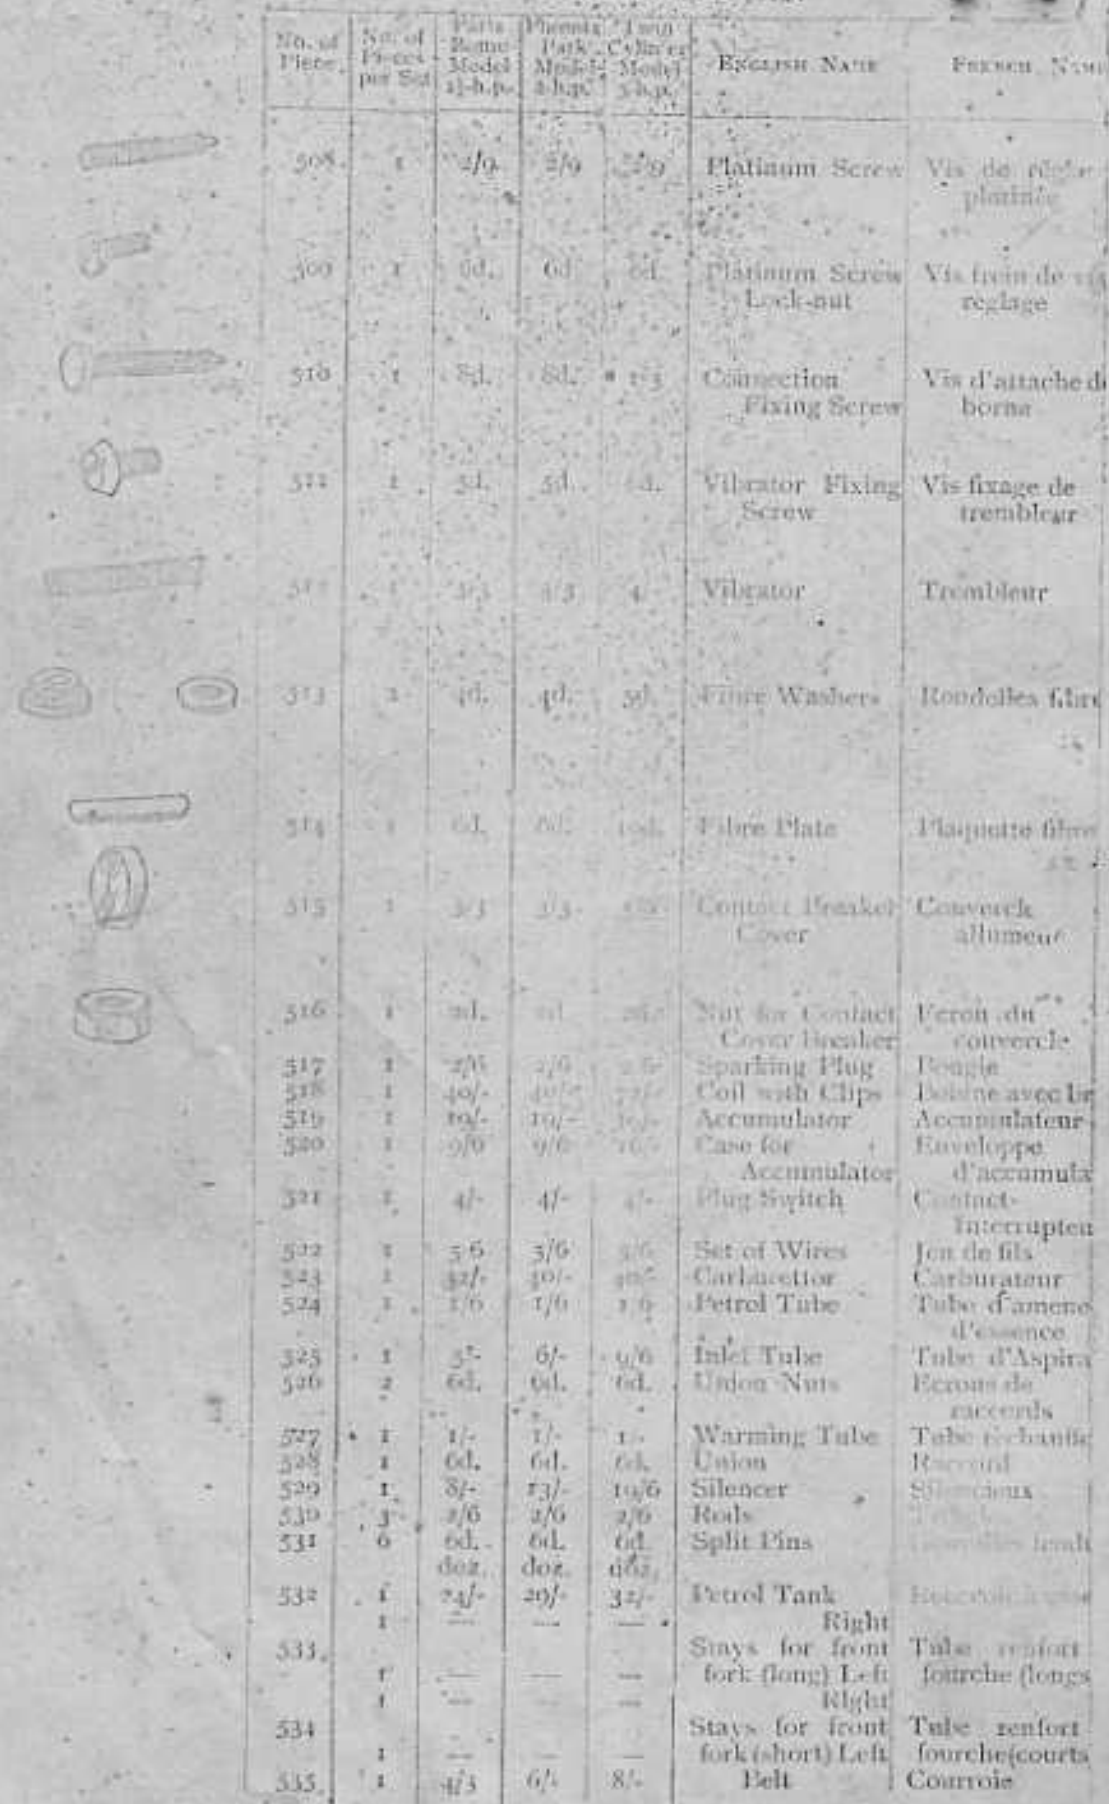 No. of Piece | No. of Pieces per Set | Paris Rome Model | Phoenix Park Model 2-h.p. | Twin Cylinder Model | ENGLISH NAME | FRENCH
508 | 1 | 2/9 | 2/9 | 2/9 | Platinum Screw | Vis de
platinée
509 | 1 | 6d. | 6d. | 6d. | Platinum Screw | Vis frein de
Lock-nut | reglage
510 | 1 | 8d. | 8d. | 1/3 | Connection | Vis d'attache
Fixing Screw | borne
511 | 1 | 5d. | 5d. | Vibrator Fixing | Vis fixage de
Screw | trembleur
512 | 1 | 3/3 | 3/3 | 4/- | Vibrator | Trembleur
513 | 2 | 4d. | 4d. | 5d. | Fibre Washers | Rondelles fibre
514 | 1 | 6d. | 6d. | 10d. | Fibre Plate | Plaquette fibre
515 | 1 | 3/3 | 3/3 | Contact Breaker | Couvercle
Cover | allumeur
516 | 1 | 2d. | 2d. | 2d. | Nut for Contact | Ecrou du
Cover Breaker | couvercle
517 | 1 | 2/6 | 2/6 | 2/6 | Sparking Plug | Bougie
518 | 1 | 40/- | 40/- | Coil with Clips | Bobine avec
519 | 1 | 19/- | 19/- | 19/- | Accumulator | Accumulateur
520 | 1 | 9/6 | 9/6 | Case for | Enveloppe
Accumulator | d'accumula
521 | 1 | 4/- | 4/- | 4/- | Plug Switch | Contact-
Interrupteu
522 | 1 | 3/6 | 3/6 | Set of Wires | Jeu de fils
523 | 1 | 32/- | 30/- | Carburettor | Carburateur
524 | 1 | 1/6 | 1/6 | 1/6 | Petrol Tube | Tube d'amene
d'essence
525 | 1 | 5/- | 6/- | 9/6 | Inlet Tube | Tube d'Aspira
526 | 2 | 6d. | 6d. | 6d. | Union Nuts | Ecrous de
raccords
527 | 1 | 1/- | 1/- | 1/- | Warming Tube | Tube
528 | 1 | 6d. | 6d. | 6d. | Union | Raccord
529 | 1 | 8/- | 13/- | 19/6 | Silencer | Silencieux
530 | 3 | 2/6 | 2/6 | 2/6 | Rods
531 | 6 | 6d. | 6d. | 6d. | Split Pins
doz. | doz. | doz.
532 | 1 | 24/- | 29/- | 32/- | Petrol Tank
1 | — | — | — | Right
533 | Stays for front | Tube renfort
1 | — | — | — | fork (long) Left | fourche (longs
1 | — | — | — | Right
534 | Stays for front | Tube renfort
1 | — | — | — | fork (short) Left | fourche (courts
535 | 1 | 4/3 | 6/- | 8/- | Belt | Courroie